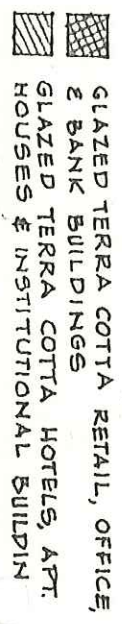 GLAZED TERRA COTTA RETAIL, OFFICE,
& BANK BUILDINGS
GLAZED TERRA COTTA HOTELS, APT.
HOUSES & INSTITUTIONAL BUILDIN